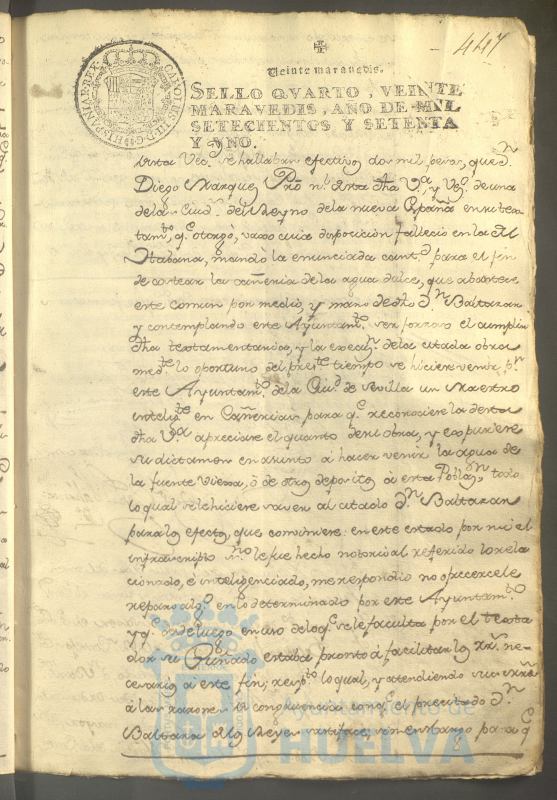 447
Veinte maravedis.
SELLO QVARTO, VEINTE
MARAVEDIS, AÑO DE MIL
SETECIENTOS Y SETENTA
Y VNO.
CAROLUS III D G HISPANIAR REX
se hallaban efectivos dos mil pesos, que Dn
Diego Marquez nl de esta dha Va, y de una
de las Ciuds del Reyno de la nueva España en su testa
mto qe otorgó, vaxo cuia disposicion falleció en la
Habana, mandó la enunciada cantd para el fin
de costear la cañeria de la agua dulce, que abastece
este comun por medio, y mano de dho Dn Baltazar
y contemplando este Ayuntamto ser forzoso el cumplim
dha testamentaria, y la execn de la citada obra
medte lo oportuno del preste tiempo se hiciere venir pr
este Ayuntamto de la Ciud de Sevilla un Maestro
inteligte en Cañerias para qe reconociere la de esta
dha Va apreciare el quanto de su obra, y expusiere
su dictamen en asunto á hacer venir la agua de
la fuente Vieja, ó de otros depositos á esta Poblazn todo
lo qual se le hiciere saver al citado Dn Baltazar
para los efectos que combiniere: en este estado por mi el
infraescripto no le fue hecho notorio al referido lo rela
cionado, e inteligenciado, me respondió no ofrecersele
reparo algo en lo determinado por este Ayuntamto
y qe desde luego en uso de lo qe se le faculta por el testa
dor su Cuñado estaba pronto á facilitar los rrs ne
cesarios á este fin; lo qual, y atendiendo
á las razones de congruencia con qe el precitado Dn
Baltazar de los Reyes satisface, sin embargo para qe
Ayuntamiento de
HUELVA